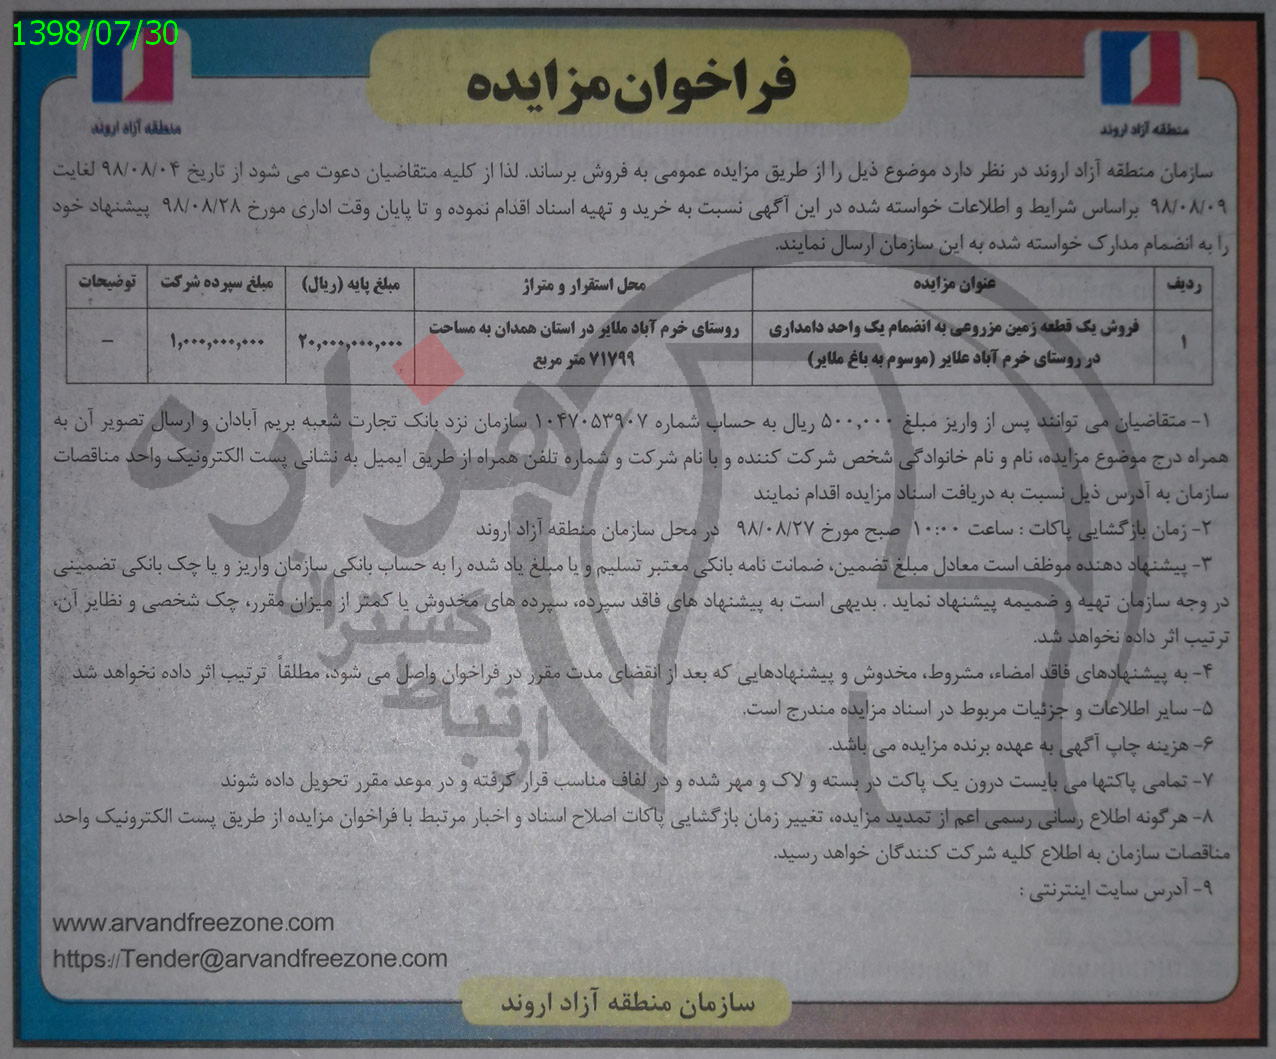 1398/07/30
فراخوان مزایده
منطقه آزاد اروند
منطقه آزاد اروند
سازمان منطقه آزاد اروند در نظر دارد موضوع ذیل را از طریق مزایده عمومی به فروش برساند. لذا از کلیه متقاضیان دعوت می شود از تاریخ ۹۸/۰۸/۰۴ لغایت
۹۸/۰۸/۰۹ براساس شرایط و اطلاعات خواسته شده در این آگهی نسبت به خرید و تهیه اسناد اقدام نموده و تا پایان وقت اداری مورخ ۹۸/۰۸/۲۸ پیشنهاد خود
را به انضمام مدارک خواسته شده به این سازمان ارسال نمایند.
ردیف عنوان مزایده محل استقرار و متراژ مبلغ پایه (ریال) مبلغ سپرده شرکت توضیحات
۱ فروش یک قطعه زمین مزروعی به انضمام یک واحد دامداری در روستای خرم آباد علایر (موسوم به باغ ملایر) روستای خرم آباد ملایر در استان همدان به مساحت ۷۱۷۹۹ متر مربع ۲۰,۰۰۰,۰۰۰,۰۰۰ ۱,۰۰۰,۰۰۰,۰۰۰ –
۱- متقاضیان می توانند پس از واریز مبلغ ۵۰۰,۰۰۰ ریال به حساب شماره ۱۰۴۷۰۵۳۹۰۷ سازمان نزد بانک تجارت شعبه بریم آبادان و ارسال تصویر آن به
همراه درج موضوع مزایده، نام و نام خانوادگی شخص شرکت کننده و با نام شرکت و شماره تلفن همراه از طریق ایمیل به نشانی پست الکترونیک واحد مناقصات
سازمان به آدرس ذیل نسبت به دریافت اسناد مزایده اقدام نمایند
۲- زمان بازگشایی پاکات : ساعت ۱۰:۰۰ صبح مورخ ۹۸/۰۸/۲۷ در محل سازمان منطقه آزاد اروند
۳- پیشنهاد دهنده موظف است معادل مبلغ تضمین، ضمانت نامه بانکی معتبر تسلیم و یا مبلغ یاد شده را به حساب بانکی سازمان واریز و یا چک بانکی تضمینی
در وجه سازمان تهیه و ضمیمه پیشنهاد نماید . بدیهی است به پیشنهاد های فاقد سپرده، سپرده های مخدوش یا کمتر از میزان مقرر، چک شخصی و نظایر آن،
ترتیب اثر داده نخواهد شد.
۴- به پیشنهادهای فاقد امضاء، مشروط، مخدوش و پیشنهادهایی که بعد از انقضای مدت مقرر در فراخوان واصل می شود، مطلقاً ترتیب اثر داده نخواهد شد
۵- سایر اطلاعات و جزئیات مربوط در اسناد مزایده مندرج است.
۶- هزینه چاپ آگهی به عهده برنده مزایده می باشد.
۷- تمامی پاکتها می بایست درون یک پاکت در بسته و لاک و مهر شده و در لفاف مناسب قرار گرفته و در موعد مقرر تحویل داده شوند
۸- هرگونه اطلاع رسانی رسمی اعم از تمدید مزایده، تغییر زمان بازگشایی پاکات اصلاح اسناد و اخبار مرتبط با فراخوان مزایده از طریق پست الکترونیک واحد
مناقصات سازمان به اطلاع کلیه شرکت کنندگان خواهد رسید.
۹- آدرس سایت اینترنتی :
www.arvandfreezone.com
https://Tender@arvandfreezone.com
سازمان منطقه آزاد اروند
هزاره
ارتباط
گستران